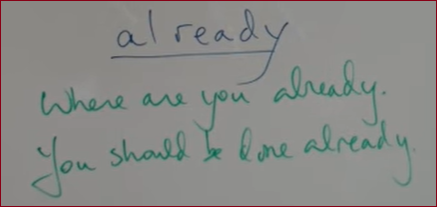 already
Where are you already.
You should be done already.